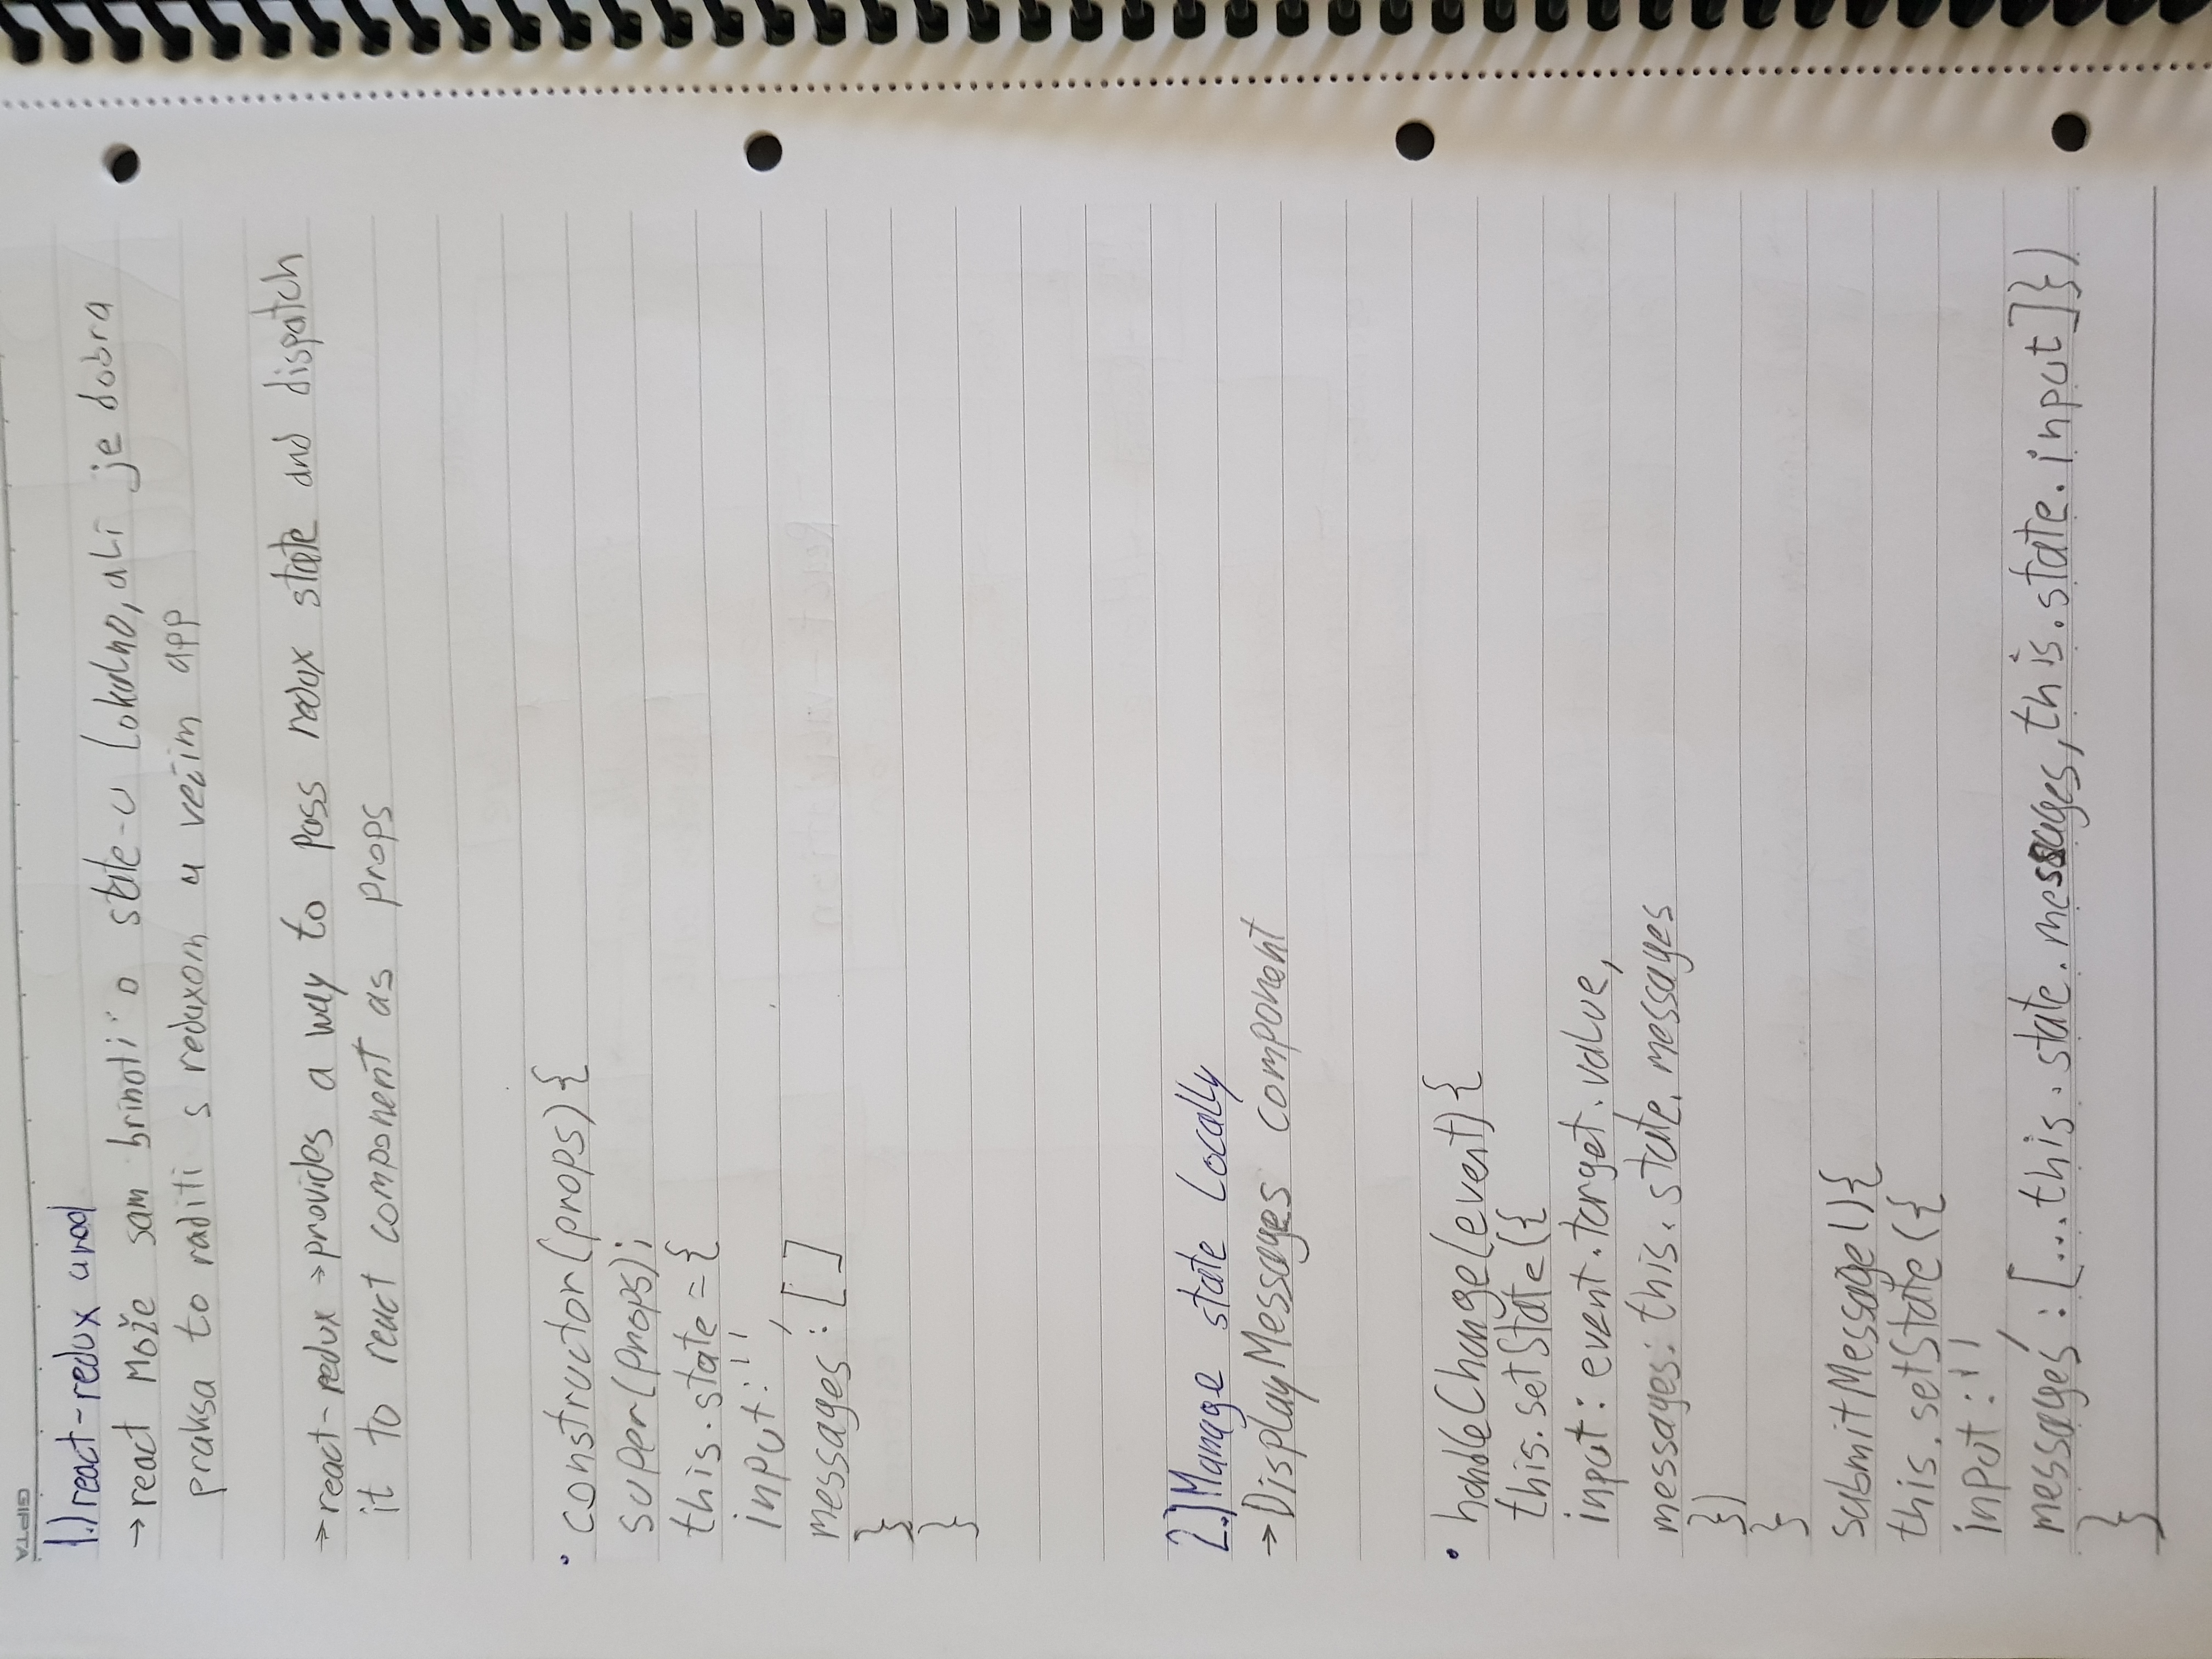 GIPTA
1.) react-redux uvod
→ react može sam brinuti o state-u lokalno, ali je dobra
praksa to raditi s reduxom u većim app
→ react-redux → provides a way to pass redux state and dispatch
it to react component as props
• constructor(props){
super(props);
this.state={
input:'',
messages:[]
}
}
2.) Manage state Locally
→ DisplayMessages component
• handleChange(event){
this.setState({
input: event.target.value,
messages: this.state.messages
})
}
submitMessage(){
this.setState({
input:'',
messages:[...this.state.messages,this.state.input]})
}